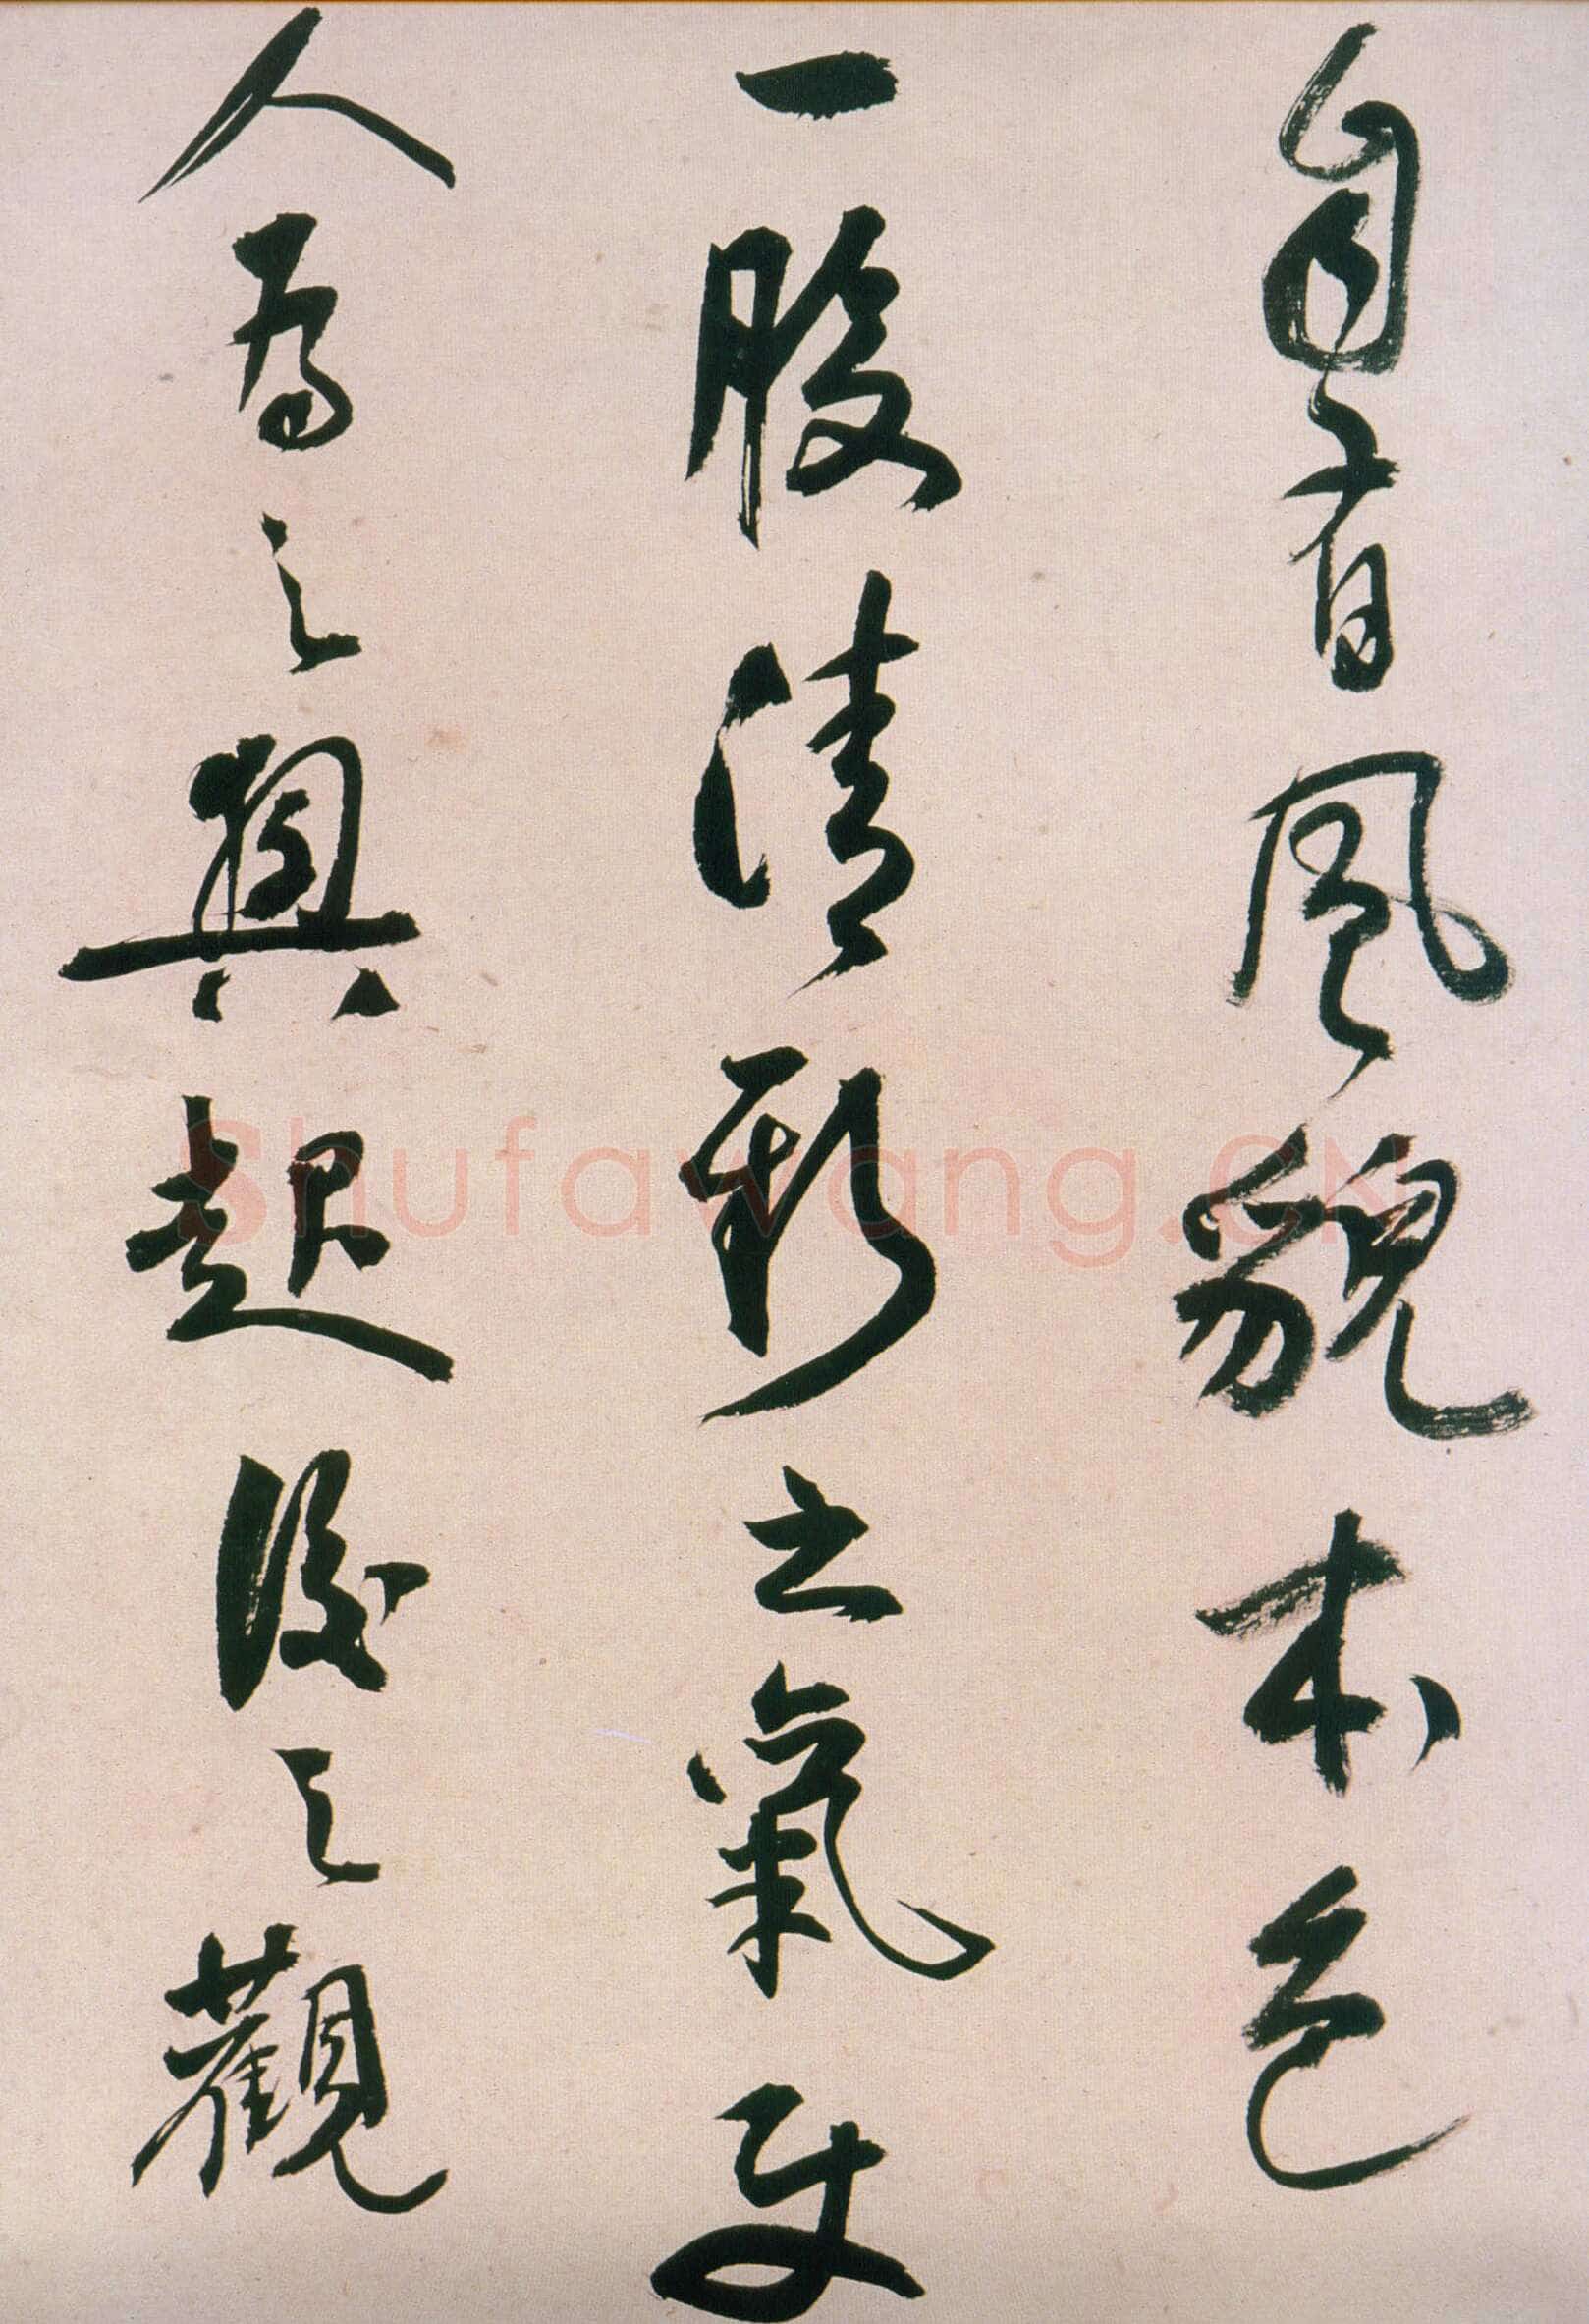 自有風貌本色
一股清新之氣使
人為之興起後之觀
Shufawang.CN